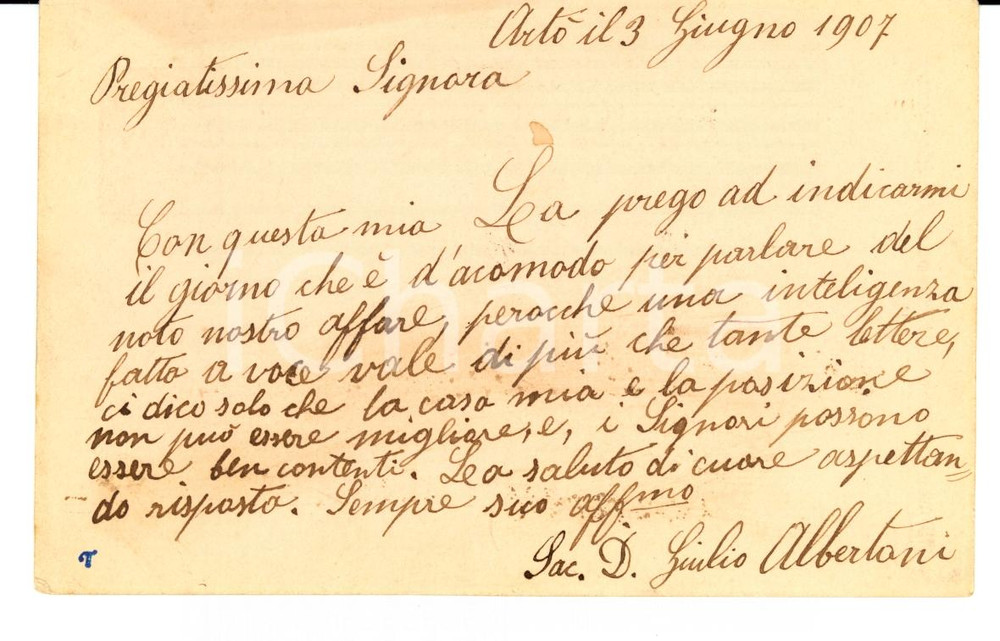 Artò il 3 Giugno 1907
Pregiatissima Signora
Con questa mia La prego ad indicarmi
il giorno che è d'acomodo per parlare del
noto nostro affare, perocche una inteligenza
fatta a voce vale di più che tante lettere,
ci dico solo che la casa mia e la posizione
non può essere migliore, e, i Signori possono
essere ben contenti. La saluto di cuore aspettan=
do risposta. Sempre suo affmo
Sac. D. Giulio Albertani
T
iCharta